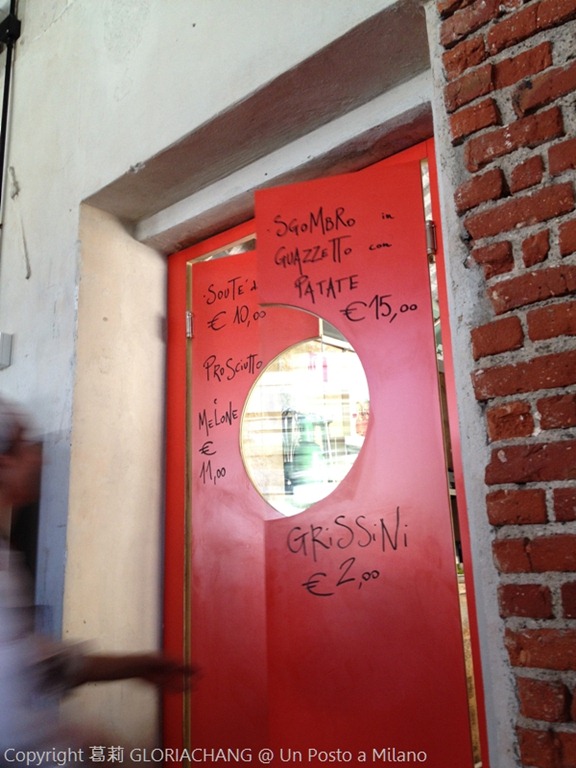 ·SOUTÈ'A
€ 10,00
PROSCIUTTO
e
MELONE
€
11,00
·SGOMBRO in
GUAZZETTO con
PATATE
€15,00
GRISSINI
€ 2,00
Copyright 葛莉 GLORIACHANG @ Un Posto a Milano